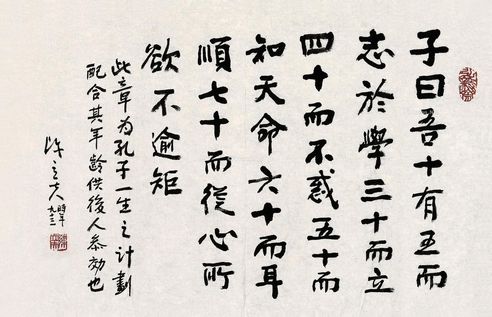 子曰吾十有五而
志於學三十而立
四十而不惑五十而
知天命六十而耳
順七十而從心所
欲不逾矩
此章為孔子一生之計劃
配合其年齡供後人参効也
陳立夫
時年九十三